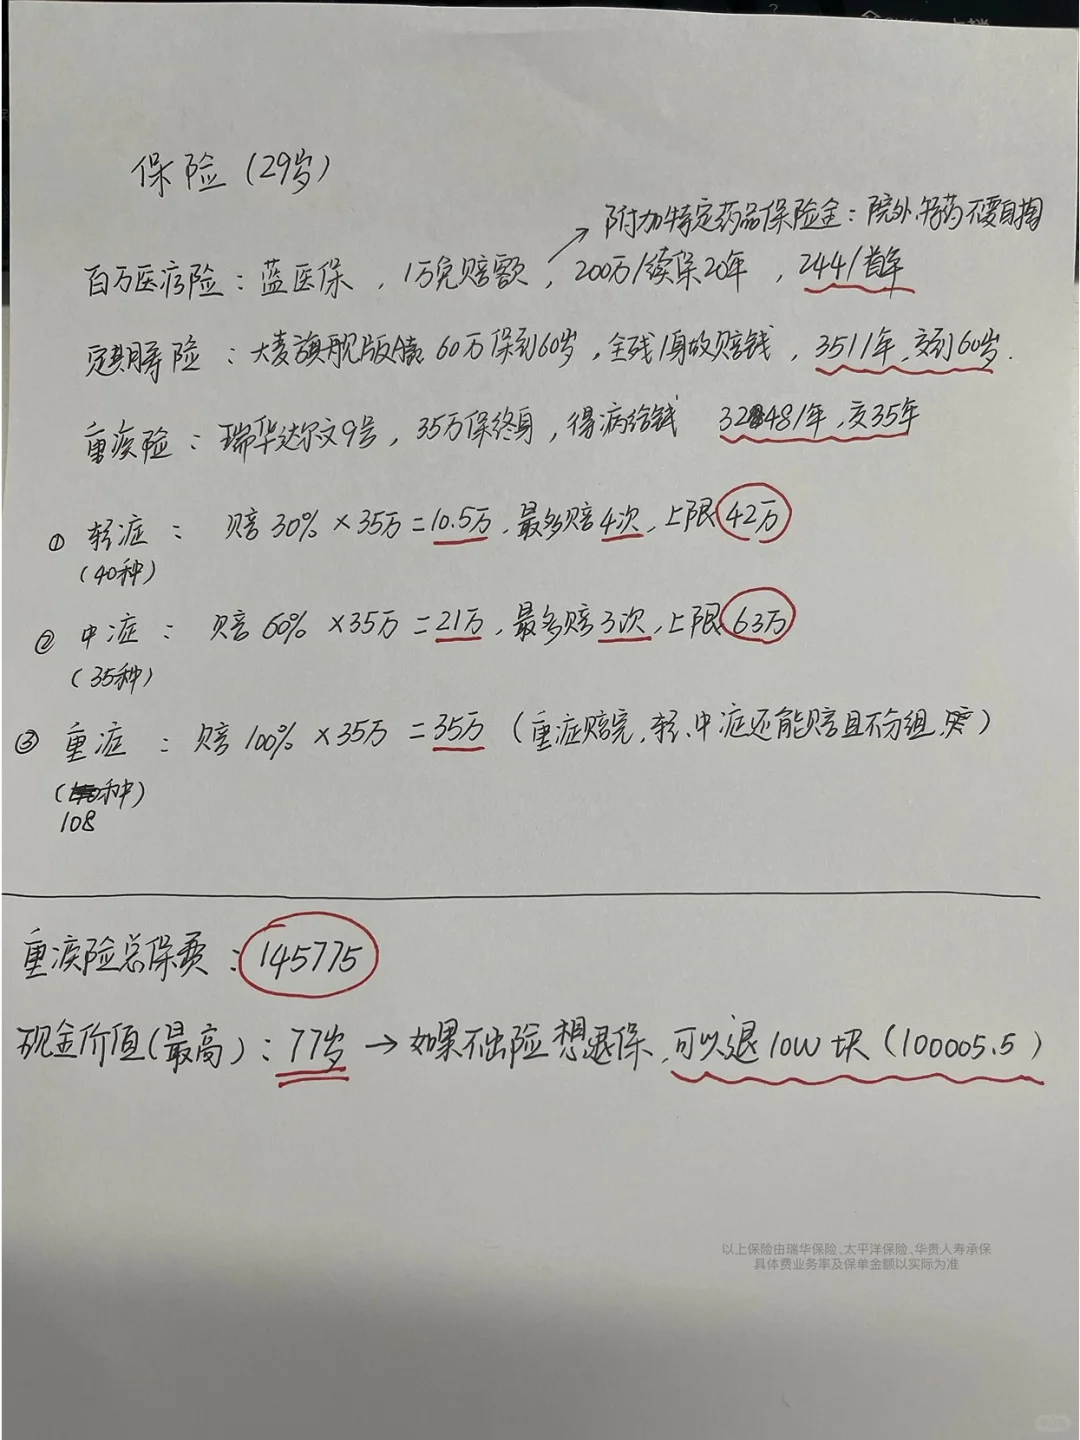 保险（29岁）
附加特定药品保险金：院外特药不要自掏
百万医疗险：蓝医保，1万免赔额，200万/续保20年，244/首年
定期寿险：大麦旗舰版A款 60万保到60岁，全残/身故赔钱，351/年，交到60岁.
重疾险：瑞华达尔文9号，35万保终身，得病给钱 3248/年，交35年
① 轻症：赔30%×35万=10.5万，最多赔4次，上限42万
（40种）
② 中症：赔60%×35万=21万，最多赔3次，上限63万
（35种）
③ 重症：赔100%×35万=35万（重症赔完，轻、中症还能赔且不分组，）
（种）
108
重疾险总保费：145775
现金价值（最高）：77岁→如果不出险想退保，可以退10W块（100005.5）
以上保险由瑞华保险、太平洋保险、华贵人寿承保
具体费业务率及保单金额以实际为准